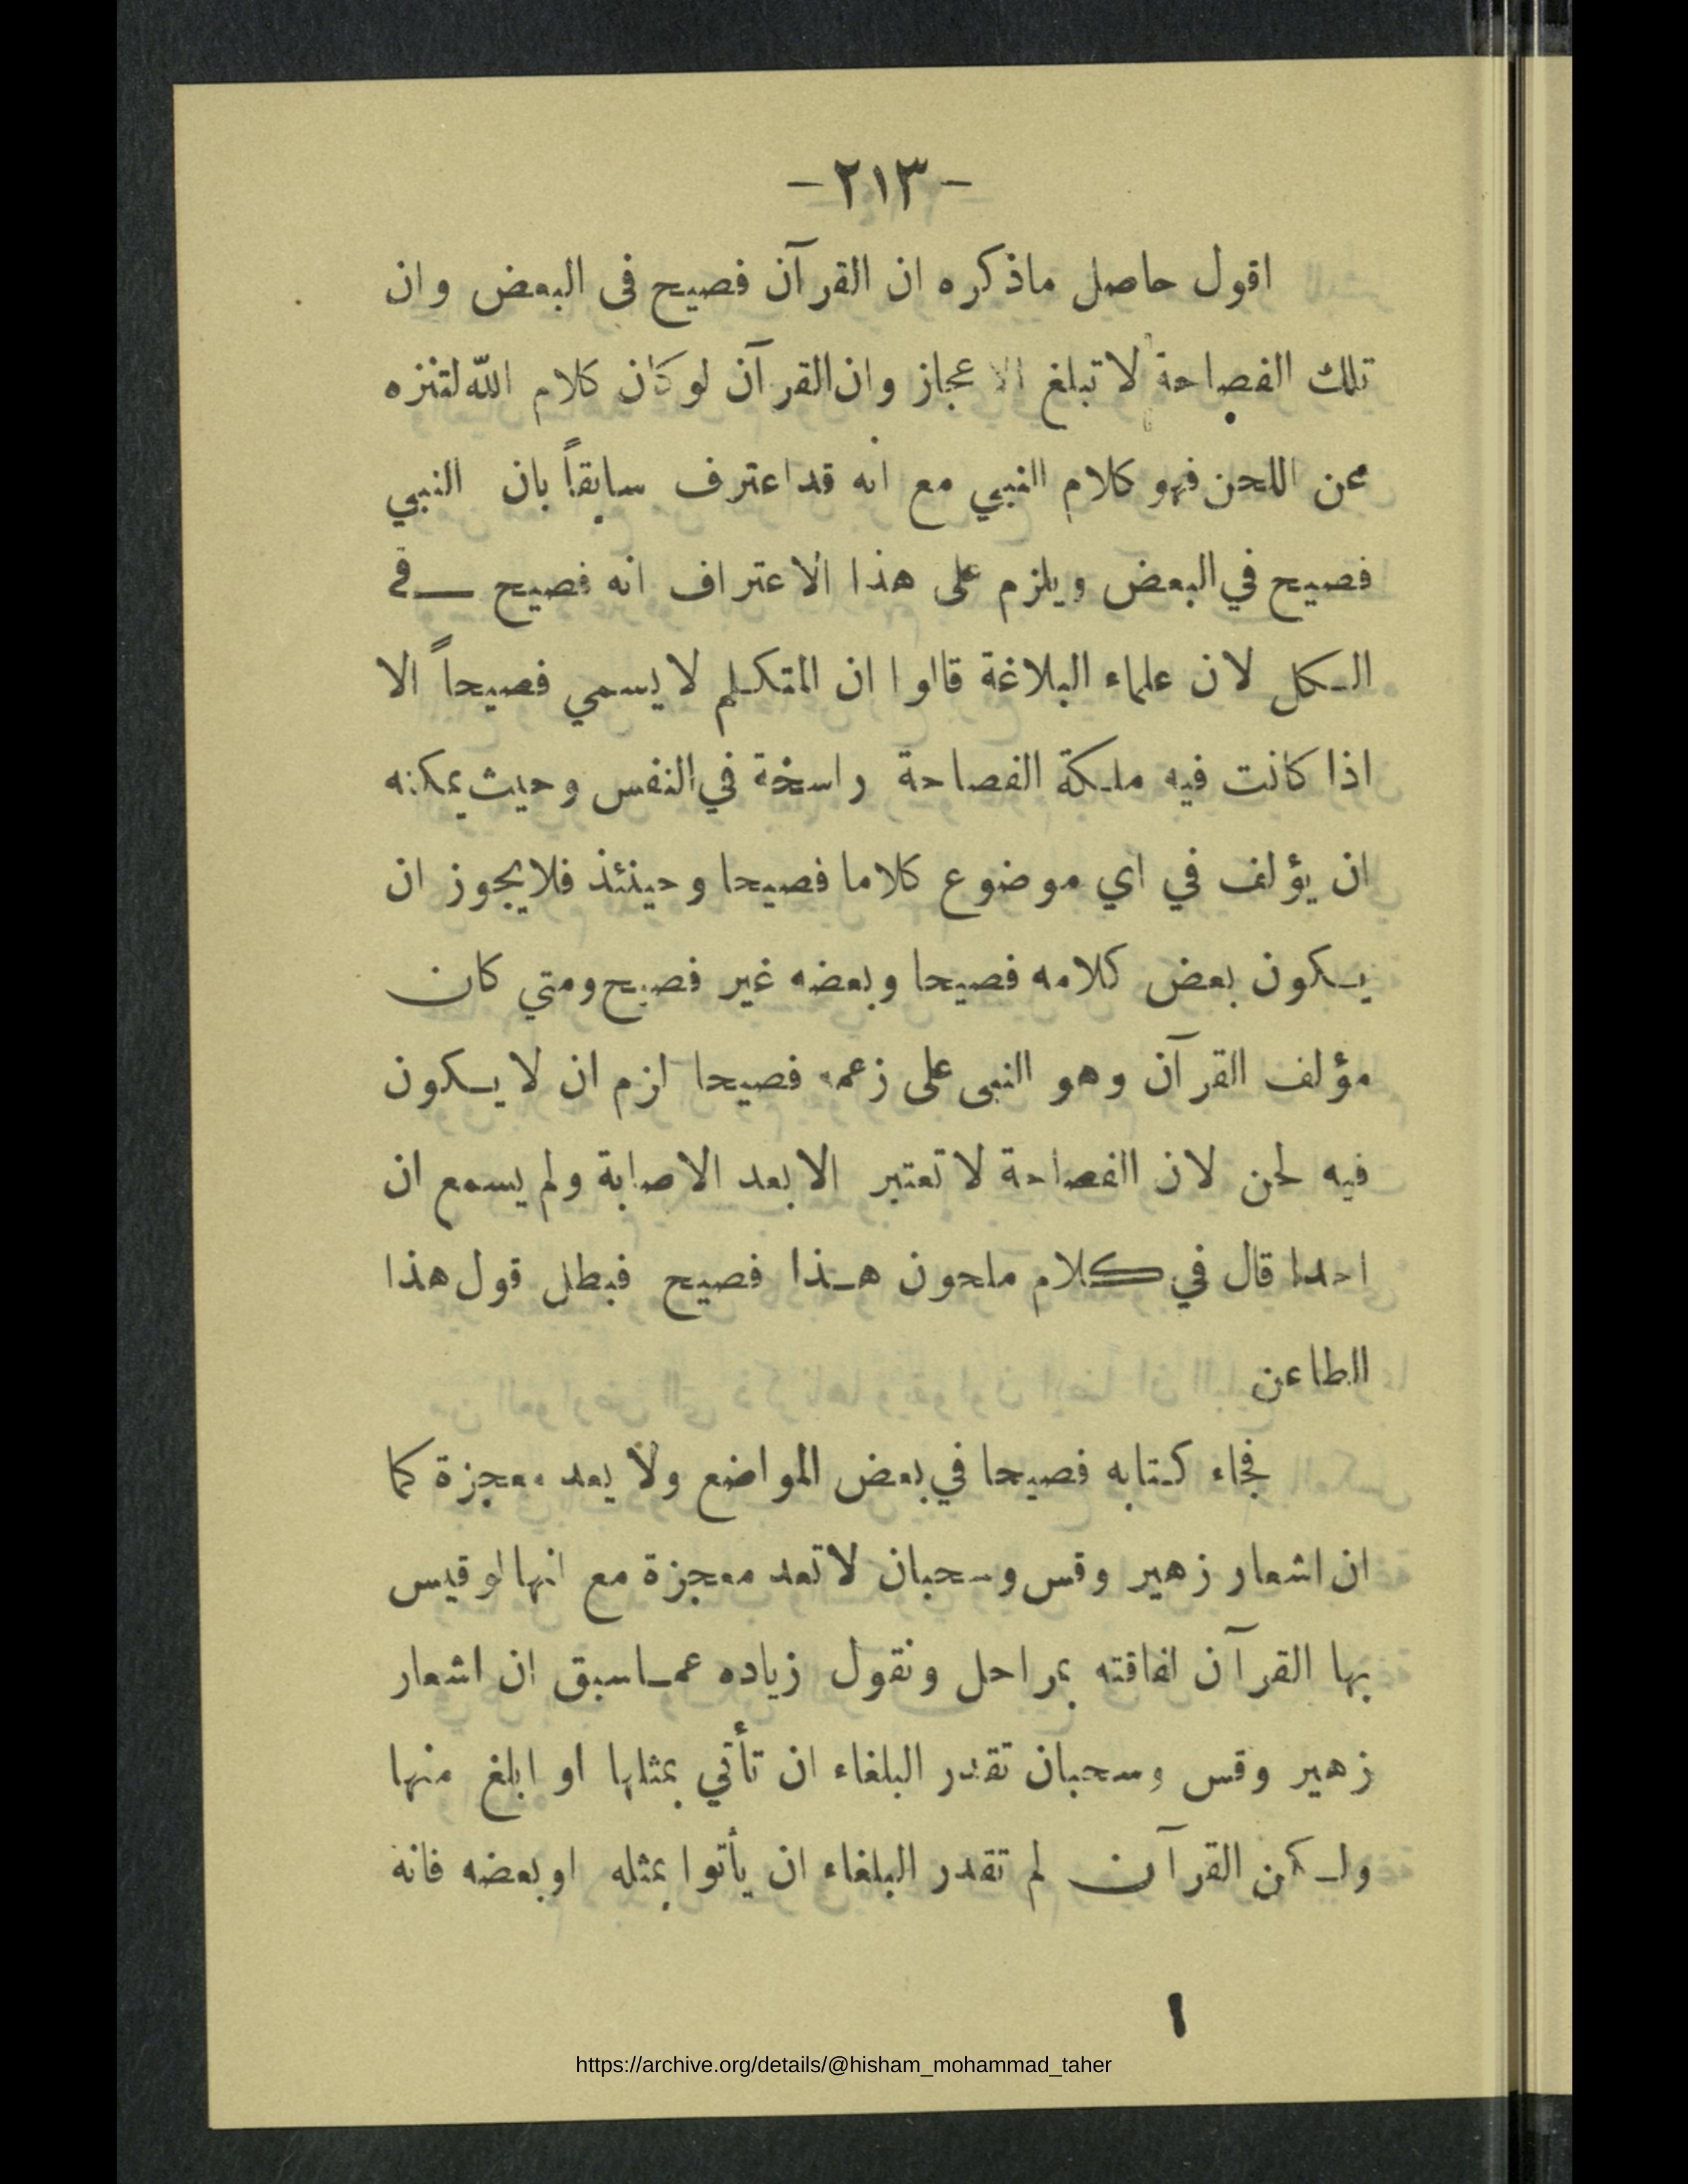 - ٢١٣ -
اقول حاصل ماذكره ان القرآن فصيح فى البعض وان
تلك الفصاحة لا تبلغ الاعجاز وان القرآن لوكان كلام الله لتنزه
عن اللحن فهو كلام النبي مع انه قد اعترف سابقاً بان النبي
فصيح في البعض ويلزم على هذا الاعتراف انه فصيح فى
الكل لان علماء البلاغة قالوا ان المتكلم لا يسمي فصيحاً الا
اذا كانت فيه ملكة الفصاحة راسخة في النفس وحيث يمكنه
ان يؤلف في اي موضوع كلاما فصيحا وحينئذ فلا يجوز ان
يكون بعض كلامه فصيحا وبعضه غير فصيح ومتي كان
مؤلف القرآن وهو النبى على زعمه فصيحا لزم ان لا يكون
فيه لحن لان الفصاحة لا تعتبر الا بعد الاصابة ولم يسمع ان
احدا قال في كلام ملحون هذا فصيح فبطل قول هذا
الطاعن
فجاء كتابه فصيحا في بعض المواضع ولا يعد معجزة كما
ان اشعار زهير وقس وسحبان لا تعد معجزة مع انها لو قيس
بها القرآن لفاقته بمراحل ونقول زياده عما سبق ان اشعار
زهير وقس وسحبان تقدر البلغاء ان تأتي بمثلها او ابلغ منها
ولكن القرآن لم تقدر البلغاء ان يأتوا بمثله او بعضه فانه
https://archive.org/details/@hisham_mohammad_taher